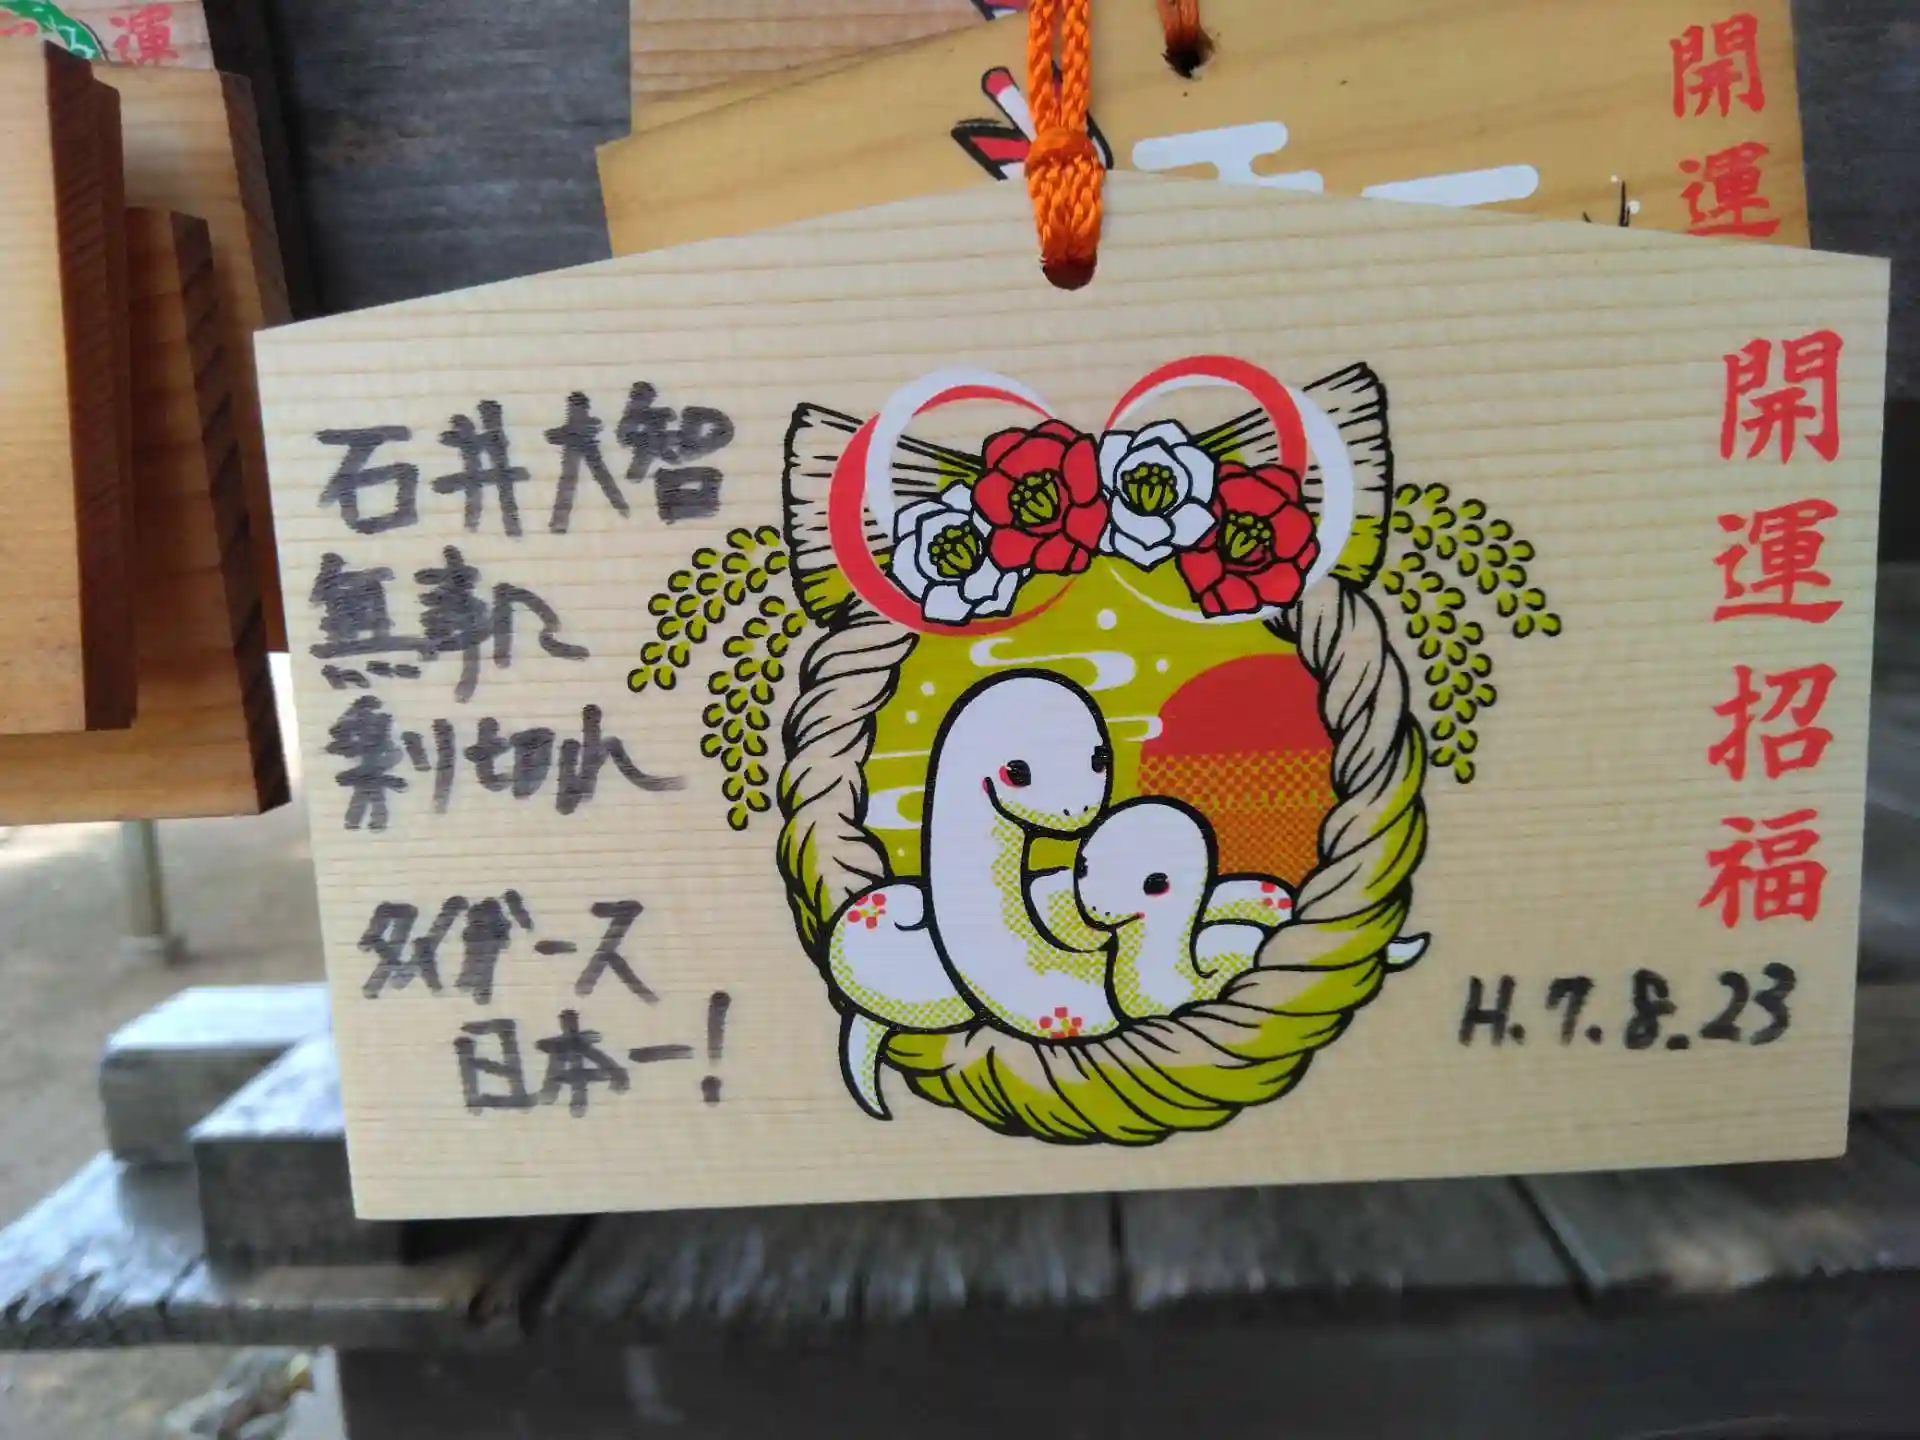 運
開運
開運招福
石井大智
無事に
乗り切れ
タイガース
日本一!
H.7.8.23